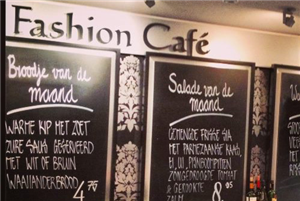 Fashion Café
Broodje van de
maand
WARME KIP MET ZOET
ZURE SAUS GESERVEERD
MET WIT OF BRUIN
WAALLANDERBROOD 4.75
Salade van de
maand
GEMENGDE FRISSE SLA
MET PARMEZAANSE KAAS,
EI, UI, PIJNBOOMPITTEN
ZONGEDROOGDE TOMAAT
& GEROOKTE
ZALM 8.95